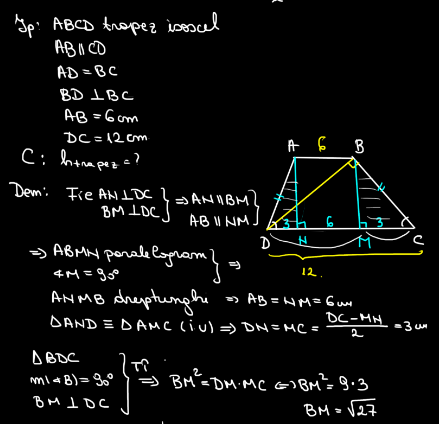 Ip: ABCD trapez isoscel
AB∥CD
AD = BC
BD ⊥ BC
AB = 6cm
DC = 12cm
C: htrapez = ?
Dem: Fie AN⊥DC
BM⊥DC } ⇒ AN∥BM
AB∥NM }
⇒ ABMN paralelogram
∢M = 90° } ⇒
ANMB dreptunghi ⇒ AB = NM = 6cm
ΔAND ≡ ΔAMC (iu) ⇒ DN = MC = (DC-MN)/2 = 3cm
ΔBDC
m(∢B) = 90°
BM ⊥ DC } TÎ ⇒ BM² = DM·MC ⇔ BM² = 9·3
BM = √27
A 6 B
D 3 N 6 M 3 C
12.